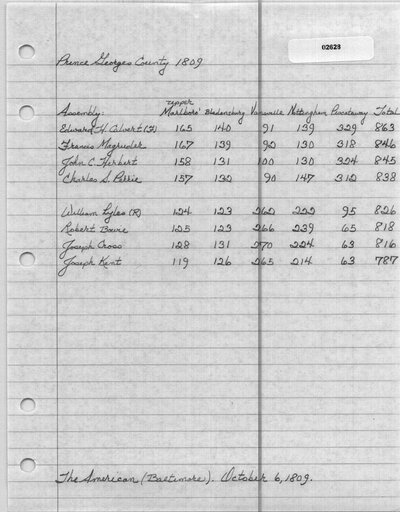 02623
Prince Georges County 1809
Upper
Assembly: Marlboro' Bladensburg Vansville Nottingham Piscataway Total
Edward H. Calvert (F) 165 140 91 139 329 863
Francis Magruder 167 139 92 130 318 846
John C. Herbert 158 131 100 130 324 845
Charles S. Pirrie 157 132 90 147 312 838
William Lyles (R) 124 123 262 222 95 826
Robert Bowie 125 123 266 239 65 818
Joseph Cross 128 131 270 224 63 816
Joseph Kent 119 126 265 214 63 787
The American (Baltimore). October 6, 1809.